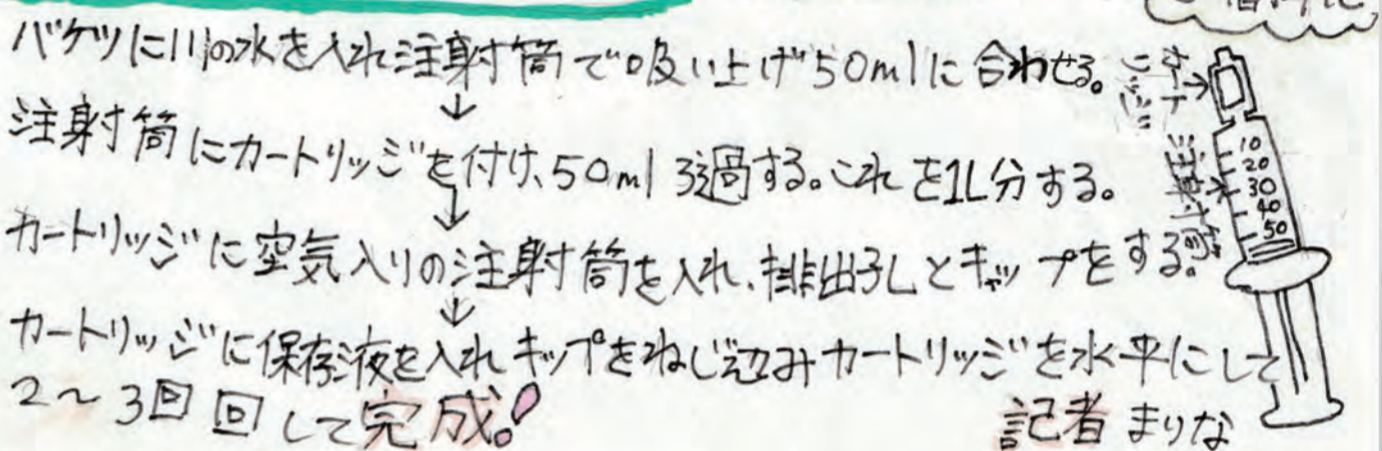 バケツに川の水を入れ注射筒で吸い上げ50mlに合わせる。
↓
注射筒にカートリッジを付け、50mlろ過する。これを1L分する。
↓
カートリッジに空気入りの注射筒を入れ、排出孔とキャップをする。
↓
カートリッジに保存液を入れキップをねじ込みカートリッジを水平にして
2～3回回して完成!
記者 まりな
注射筒
10
20
30
40
50